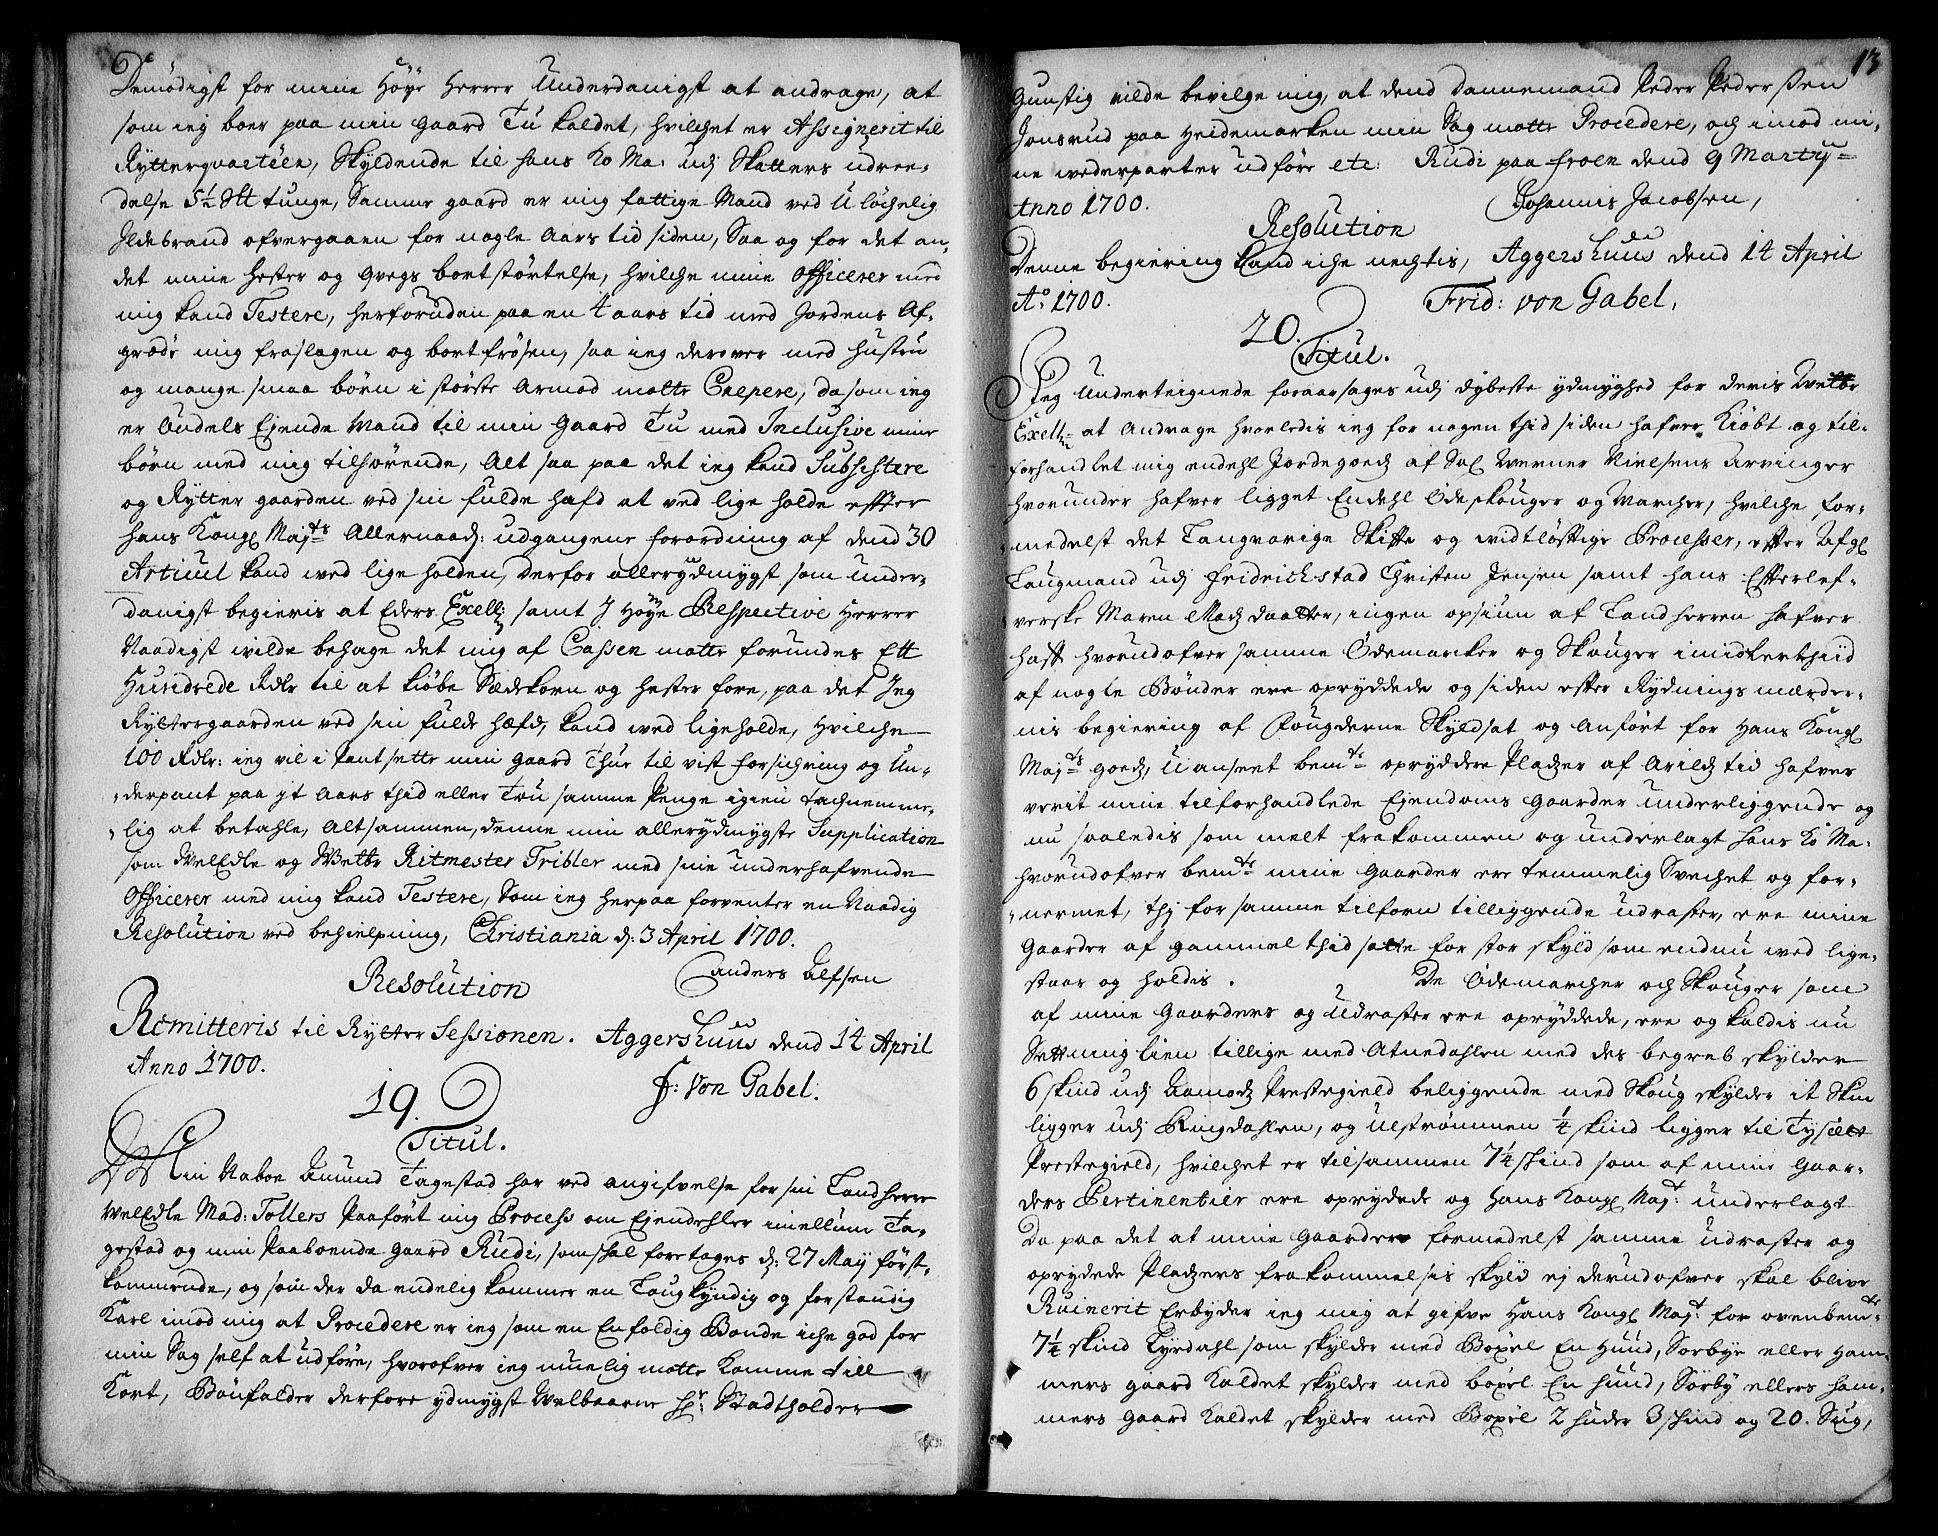 Demødigst for mine Høye Herrer Underdanigst at andrage, at
som ieg boer paa min Gaard Tu kaldet, hvilchet er Assignerit til
Rytterqvarteer, Skyldende til hans Ko Ma: udj Skatters udree-
delse 5½ St tunge, Samme gaard er mig fattige Mand ved Uløchelig
Ildebrand ofvergaaen for nogle Aars tid siden, Saa og for det an-
det mine hester og Qvegs bortstørtelse, hvilche mine Officerer med
mig kand Testere, herforuden paa en 4 aars tid med Jordens Af-
grøde mig fraslagen og bortfrøsen, saa ieg derover med hustru
og mange smaa børn i største Armod motte Crepere, da som ieg
er Oudels Ejende Mand til min Gaard Tu med Inclusive mine
børn med mig tilhørende, Alt saa paa det ieg kand Subsistere
og Rytter gaarden ved sin fulde hafd at ved lige holde efter
hans Kongl Majts Allernaad: udgangene forordning af dend 30
Articul kand ved lige holden, Derfor allerydmygst som under-
danigst begieris at Eders Excell: samt J Høye Respective Herrer
Naadigst wilde behage det mig af Cassen motte forundes Ett
Hundrede Rdlr til at kiøbe Sædekorn og hester fore, paa det Jeg
Ryttergaarden ved sin fulde hæfd, kand ved ligeholde, Hvilche
100 Rdlr: ieg vil i Pantsette min gaard Thue til vist forsichring og Un-
derpant paa it Aars thid eller Tou samme Penge igien tachnemme-
lig at betahle, Altsammen, denne min allerydmygste Supplication
som WelEdle og Welbr Ritmester Tribler med sine underhafvende
Officerer med mig kand Testere, Som ieg herpaa forventer en Naadig
Resolution ved behielpning, Christiania d: 3 April 1700.
Anders Alfsen
Resolution
Remitteris til Rytter Sessionen. Aggershuus dend 14 April
Anno 1700.
F: Von Gabel.
19.
Titul.
Min Naboe Amund Tagestad har ved angifvelse for sin Landherre
WelEdle Mad: Tollers Paaført mig Process om Ejendehler imellum Ta-
gestad og min Paaboende Gaard Rudi, som schal foretages d: 27 May først-
kommende, og som der da endelig kommer en Laugkyndig og forstandig
Karl imod mig at Procedere er ieg som en Enfoldig Bonde iche god for
min Sag self at udføre, hvorofver ieg muelig motte komme till
Kort, Bønfalder derfore ydmygst Welbaarne Hr: Stadtholder
13
Gunstig wilde bevilge mig, at dend Dannemand Peder Pederssen
Jonsrud paa Heidemarken min Sag motte Procedere, och imod mi-
ne wederparter udføre etc: Rudi paa Froen dend 9 Martij
Anno 1700.
Johannis Jacobsen,
Resolution
Denne begiering kand iche nechtis, Aggershuus dend 14 April
Ao 1700.
Frid: von Gabel.
20.
Titul.
Jeg Underteignede foraarsages udj dybeste ydmyghed for Deris Welbr
Exell: at Andrage hvorledis ieg for nogen thid siden hafver Kiøbt og til-
forhandlet mig endehl Jordegoeds af Sal Werner Nielsens Arvinger
hvorunder hafver ligget Endehl Ødeskouger og Marcher, hvilche for-
medelst det Langvarige Skifte og widtløftige Processer, efter Afgl
Laugmand udj Fridrichstad Christen Jensen samt hans Efterlef-
verske Maren Madsdaatter, ingen opsiun af Landherren hafver
haft hvorudofver samme Ødemarcker og Skouger imidlerthiid
af nogle Bønder ere opryddede og siden efter Rydnings mænde-
nis begiering af Fougderne Skyldsat og Anført for Hans Kongl
Majts goeds, Uanseet bemte opryddede Pladzer af Arilds tid hafver
verit mine tilforhandlede Ejendoms Gaarder underliggende og
nu saaledis som melt frakommen og underlagt hans Ko Ma:
hvorudofver bemte mine Gaarder ere temmelig Svechet og for-
nermet, thj for samme tilforn tilliggende udraster, ere mine
Gaarder af gammel thid satte for stor skyld som endnu wed lige
staar og holdis. De Ødemarcher och Skouger som
af mine Gaarders og udraster ere opryddede, ere og kaldis nu
Settning Lien tillige med Atnedahlen med des begreb skylder
6 skind udj Aamods Prestegield beliggende med Skoug skylder it Skin
ligger udj Ringdahlen, og Ulstrømmen ¼ skind ligger til Tysett
Prestegield, hvilchet er tilsammen 7¼ skind som af mine Gaar-
ders Pertinentier ere oprydede og Hans Kongl Majt: underlagt
Da paa det at mine Gaarder formedelst samme udraster og
oprydede Pladzers frakommelsis skyld ej derudofver skal blive
Ruinerit Erbyder ieg mig at gifve Hans Kongl Majt for ovenbemte
7¼ skind Tyrdahl som skylder med Boxel En Huud, Sorbye eller Ham-
mers gaard Kaldet skylder med boxel En huud, Sorby ellers ham-
mers Gaard Kaldet skylder med Boxel 2 huder 3 skind og 20. Sug,